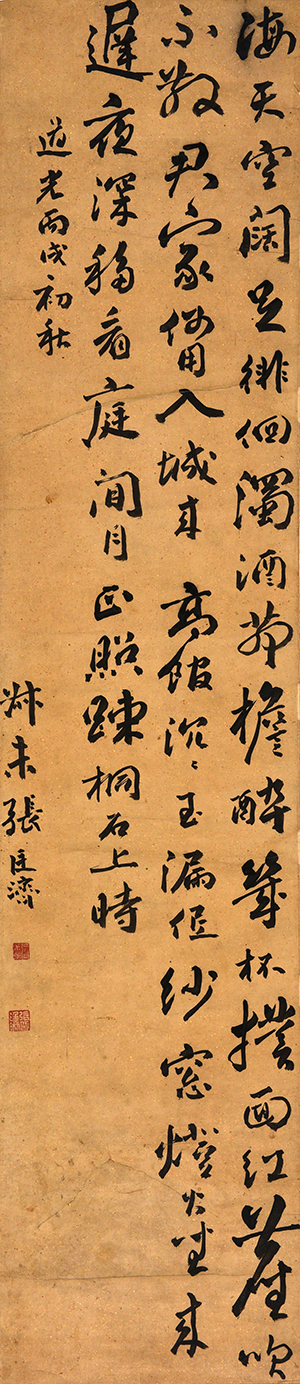 海天空闊足徘徊濁酒茅檐醉幾杯撲面紅塵吹
不散君家何用入城來高館沉々玉漏低紗窗燈火坐來
遲夜深移看庭間月正照疎桐石上時
道光丙戌初秋
叔未張廷濟